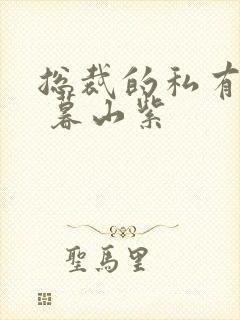 总裁的私有
暮山紫
聖馬里